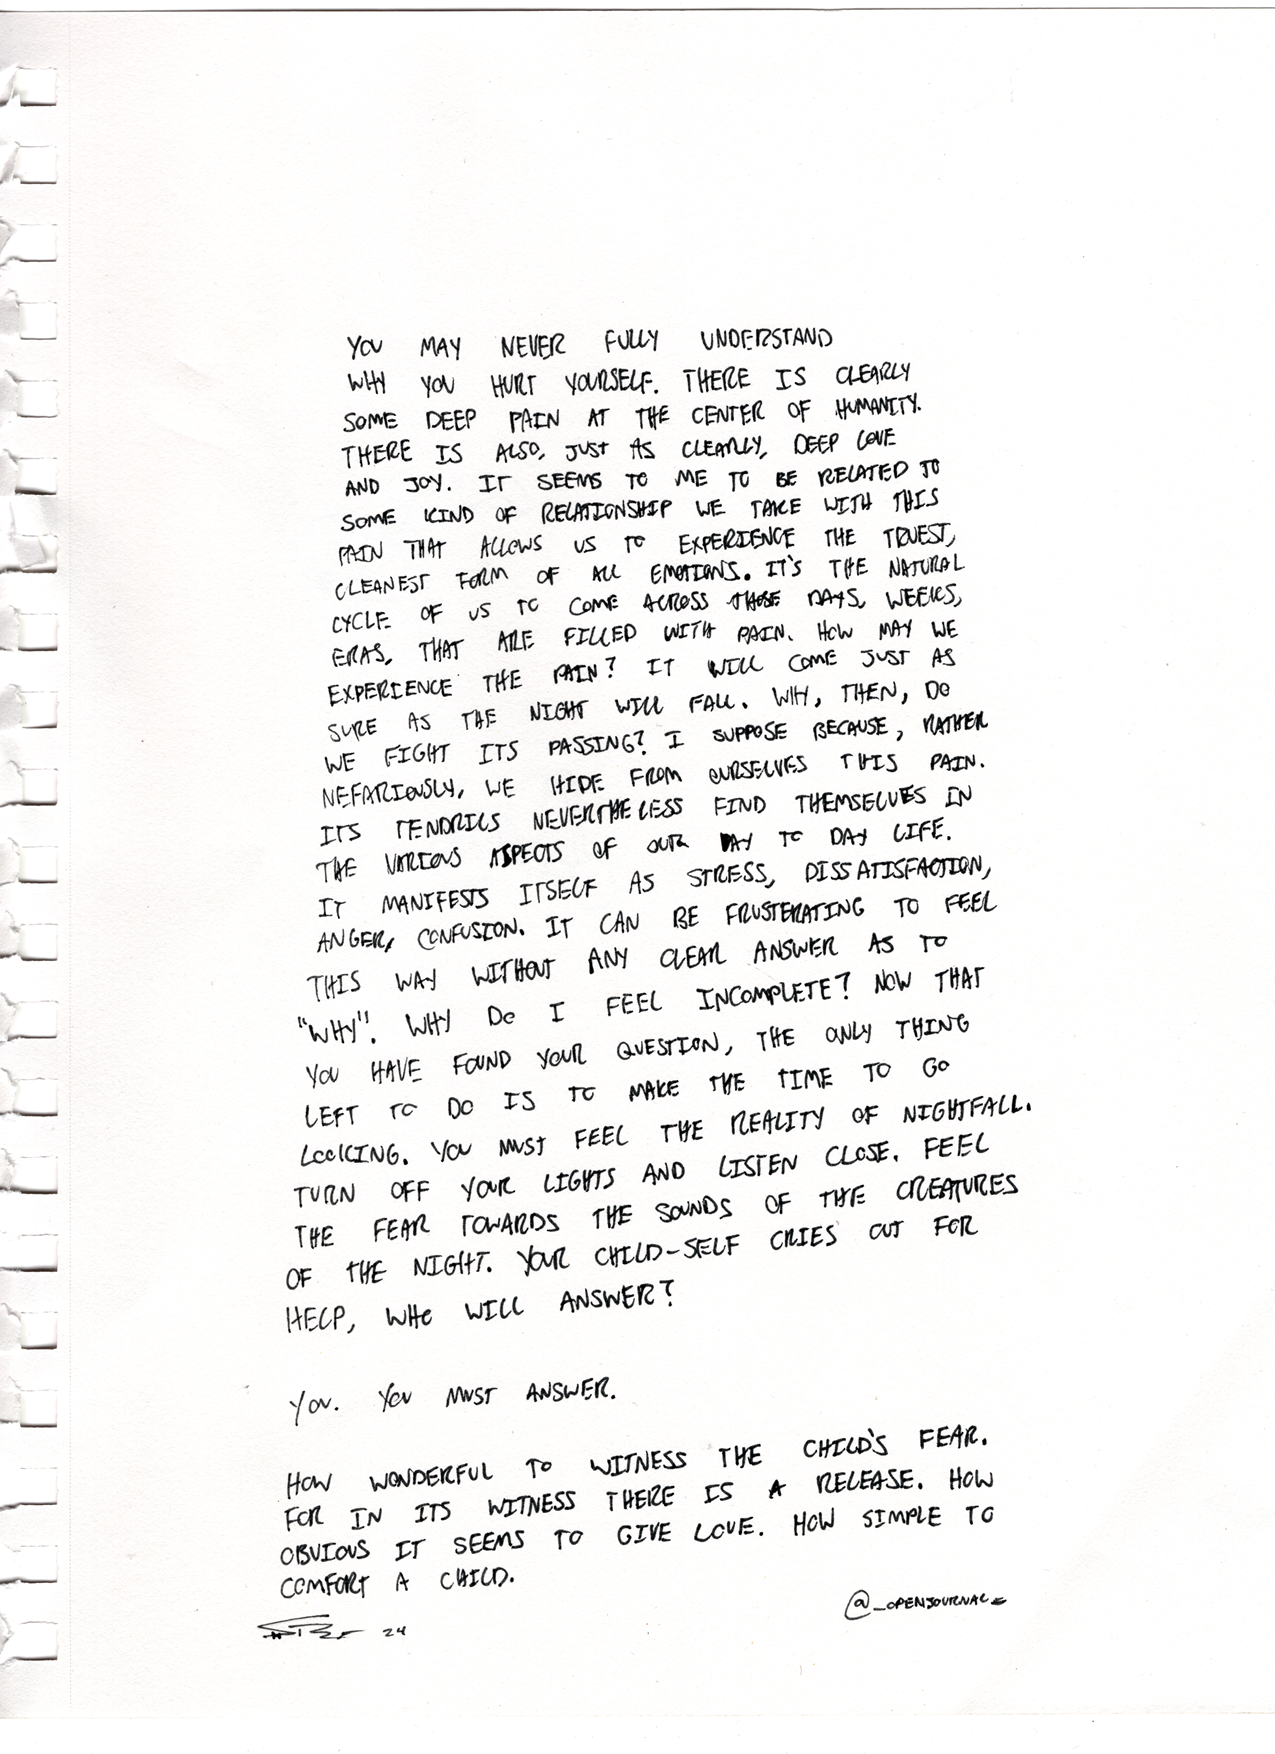 YOU MAY NEVER FULLY UNDERSTAND
WHY YOU HURT YOURSELF. THERE IS CLEARLY
SOME DEEP PAIN AT THE CENTER OF HUMANITY.
THERE IS ALSO, JUST AS CLEARLY, DEEP LOVE
AND JOY. IT SEEMS TO ME TO BE RELATED TO
SOME KIND OF RELATIONSHIP WE TAKE WITH THIS
PAIN THAT ALLOWS US TO EXPERIENCE THE TRUEST,
CLEANEST FORM OF ALL EMOTIONS. IT'S THE NATURAL
CYCLE OF US TO COME ACROSS THOSE DAYS, WEEKS,
ERAS, THAT ARE FILLED WITH PAIN. HOW MAY WE
EXPERIENCE THE PAIN? IT WILL COME JUST AS
SURE AS THE NIGHT WILL FALL. WHY, THEN, DO
WE FIGHT ITS PASSING? I SUPPOSE BECAUSE, RATHER
NEFARIOUSLY, WE HIDE FROM OURSELVES THIS PAIN.
ITS TENDRILS NEVERTHELESS FIND THEMSELVES IN
THE VARIOUS ASPECTS OF OUR DAY TO DAY LIFE.
IT MANIFESTS ITSELF AS STRESS, DISSATISFACTION,
ANGER, CONFUSION. IT CAN BE FRUSTERATING TO FEEL
THIS WAY WITHOUT ANY CLEAR ANSWER AS TO
"WHY". WHY DO I FEEL INCOMPLETE? NOW THAT
YOU HAVE FOUND YOUR QUESTION, THE ONLY THING
LEFT TO DO IS TO MAKE THE TIME TO GO
LOOKING. YOU MUST FEEL THE REALITY OF NIGHTFALL.
TURN OFF YOUR LIGHTS AND LISTEN CLOSE. FEEL
THE FEAR TOWARDS THE SOUNDS OF THE CREATURES
OF THE NIGHT. YOUR CHILD-SELF CRIES OUT FOR
HELP, WHO WILL ANSWER?
YOU. YOU MUST ANSWER.
HOW WONDERFUL TO WITNESS THE CHILD'S FEAR.
FOR IN ITS WITNESS THERE IS A RELEASE. HOW
OBVIOUS IT SEEMS TO GIVE LOVE. HOW SIMPLE TO
COMFORT A CHILD.
@_OPENJOURNAL_
24